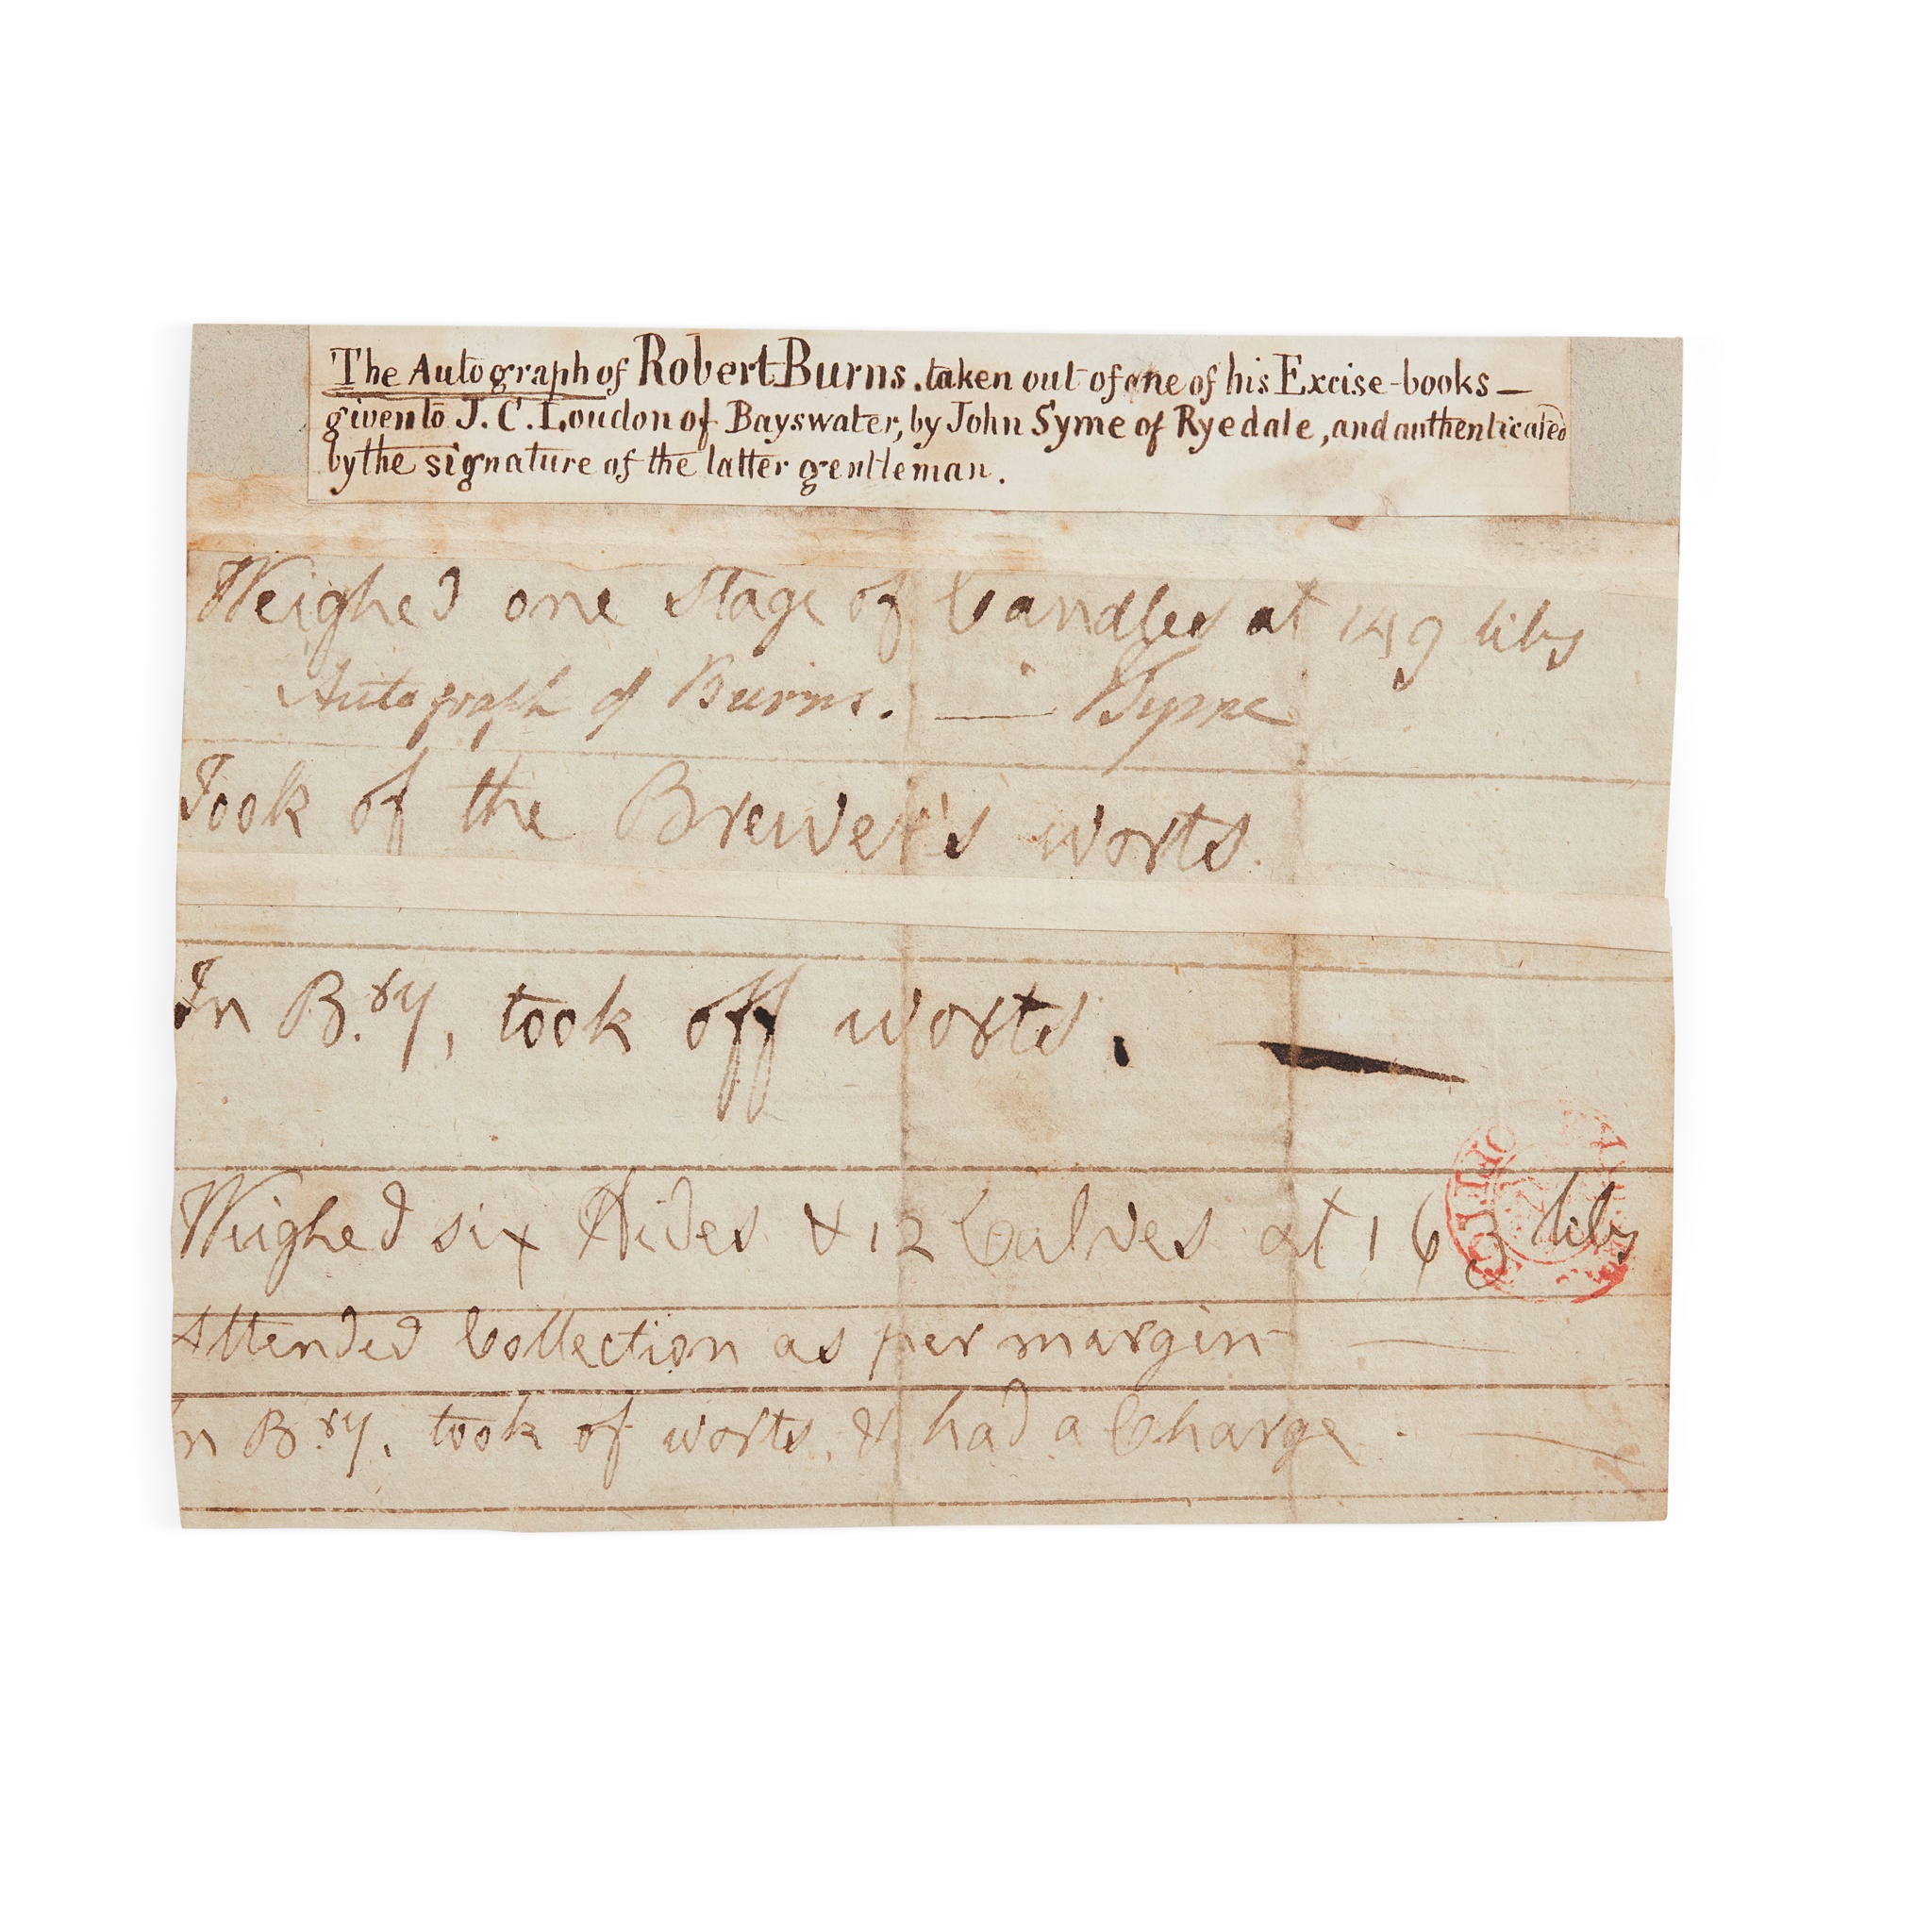 The Autograph of Robert Burns. taken out of one of his Excise-books—
given to J. C. Loudon of Bayswater, by John Syme of Ryedale, and authenticated
by the signature of the latter gentleman.
Weighed one stage of Candles at 149 libs
Autograph of Burns. — JSyme
Took of the Brewer's worts.
In B.ry, took off worts. —
Weighed six Hides & 12 Calves at 163 libs
Attended Collection as per margin —
In B.ry. took of worts, & had a Charge. —